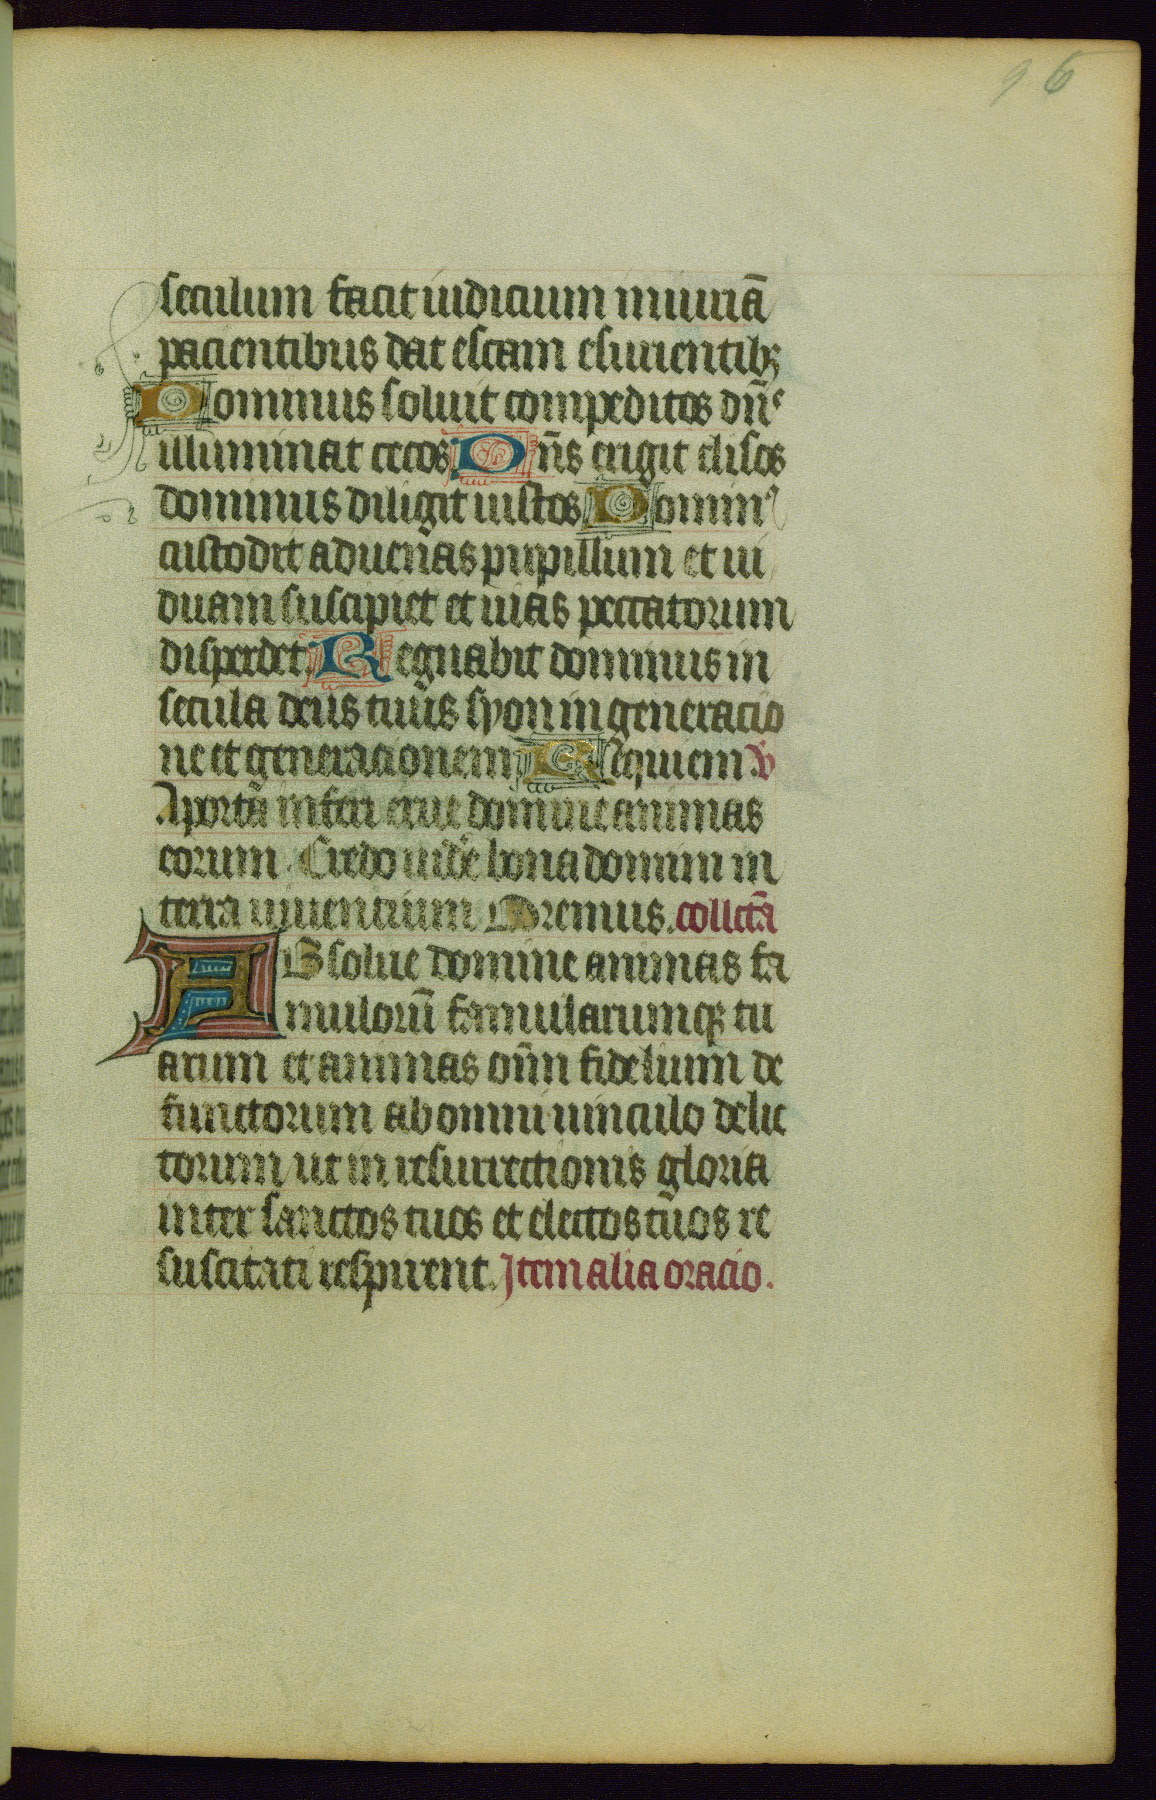 96
seculum facit iudicium iniuriā
pacientibus dat escam esurientibꝫ
Dominus soluit compeditos dn̄s
illuminat cecos Dn̄s erigit elisos
dominus diligit iustos Dominꝰ
custodit aduenas pupillum et ui
duam suscipiet et uias peccatorum
disperdet Regnabit dominus in
secula deus tuus syon in generacio
ne et generacionem Requiem ℣
A portā inferi erue domine animas
eorum Credo uidē bona domini in
terra uiuentium Oremus. collctā
ABsolue domine animas fa
mulorū famularumqꝫ tu
arum et animas om̄n fidelium de
functorum ab omni uinculo delic
torum ut in resurrectionis gloria
inter sanctos tuos et electos tuos re
suscitati respirent. Item alia oracio.